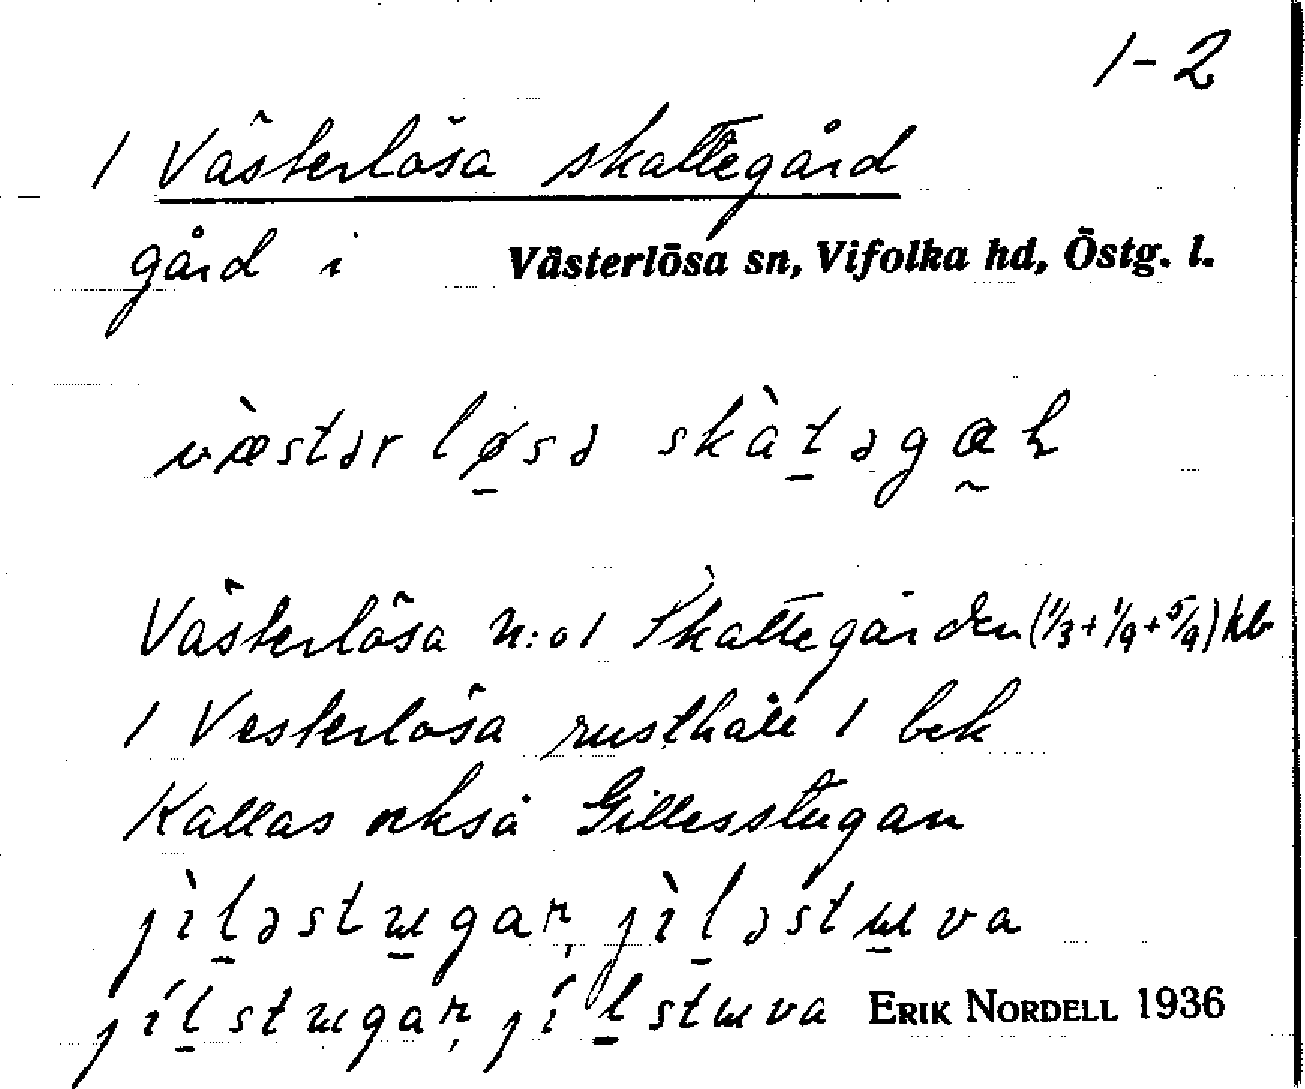 1-2
1 Västerlösa skattegård
gård i Västerlösa sn, Vifolka hd, Östg. l.
væ̀stər lø̱sə skàṯəgo̰ꞕ
Västerlösa N:o 1 Skattegården (1/3+1/9+5/9) hb
1 Vesterlösa rusthåll 1 bek
Kallas också Gillesstugan
jìḻəstɯ̱gaṇ, jìḻəstɯ̱va
jíḻstɯgaṇ, jíḻstɯva ERIK NORDELL 1936